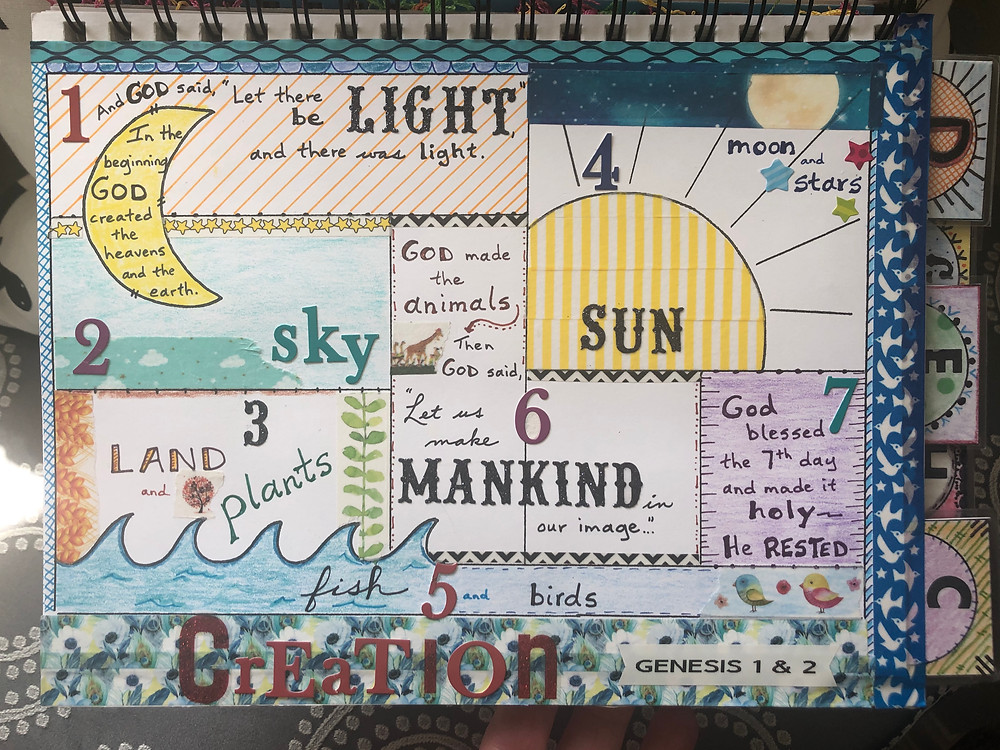 1
And GOD said, "Let there
be LIGHT,"
and there was light.
In the
beginning
GOD
created
the
heavens
and the
earth.
2
sky
3
LAND
and
plants
4
moon
and
stars
SUN
fish 5 and birds
GOD made
the
animals
Then
GOD said,
6
"Let us
make
MANKIND in
our image..."
7
God
blessed
the 7th day
and made it
holy~
He RESTED
CrEaTIOn
GENESIS 1 & 2
D
E
C